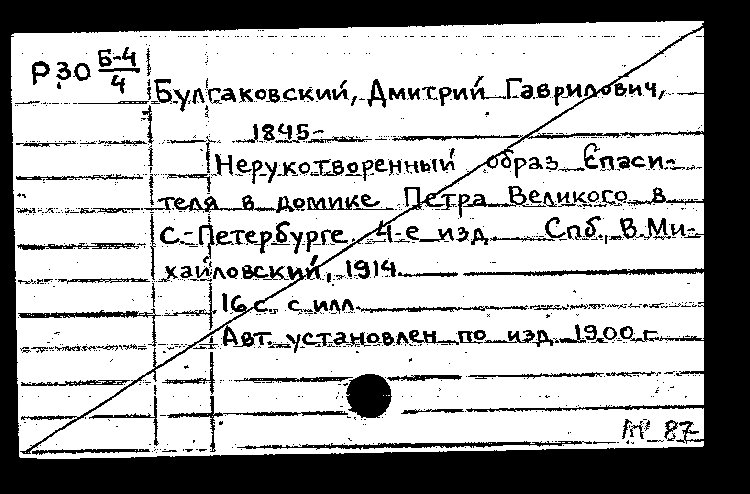 Р30 Б-4/4
Булгаковский, Дмитрий Гаврилович,
1845-
Нерукотворенный образ Спаси-
теля в домике Петра Великого в
С.-Петербурге. 4-е изд. Спб., В.Ми-
хайловский, 1914.
16 с. с илл.
Авт. установлен по изд. 1900 г.
АР 87